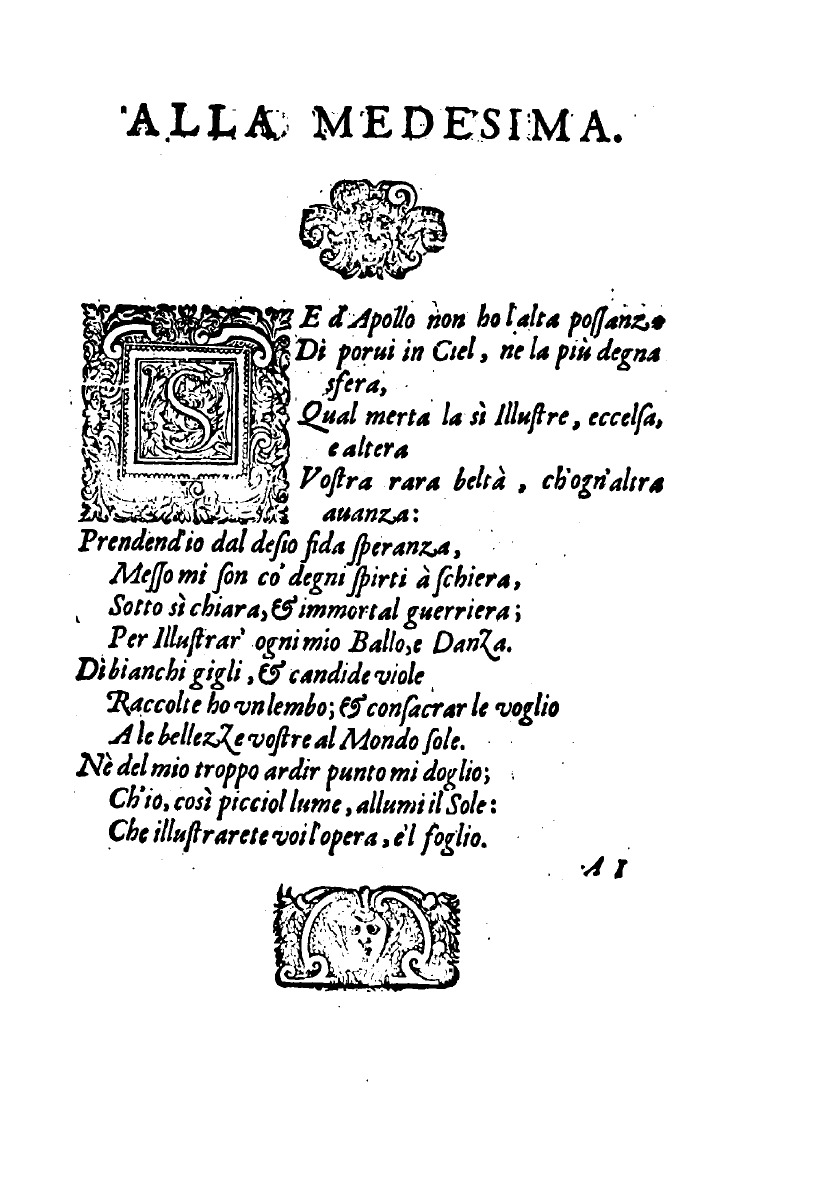 ALLA MEDESIMA.
SE d'Apollo non ho l'alta possanza
Di porui in Ciel, ne la più degna
sfera,
Qual merta la sì Illuſtre, eccelſa,
e altera
Voſtra rara beltà, ch'ogn'altra
auanza:
Prendend'io dal deſio fida ſperanza,
Meſſo mi ſon co' degni ſpirti à ſchiera,
Sotto sì chiara, & immortal guerriera;
Per Illuſtrar' ogni mio Ballo, e Danza.
Di bianchi gigli, & candide viole
Raccolte ho vn lembo; & conſacrar le voglio
A le bellezze voſtre al Mondo ſole.
Nè del mio troppo ardir punto mi doglio;
Ch'io, così picciol lume, allumi il Sole:
Che illuſtrarete voi l'opera, e'l foglio.
A I